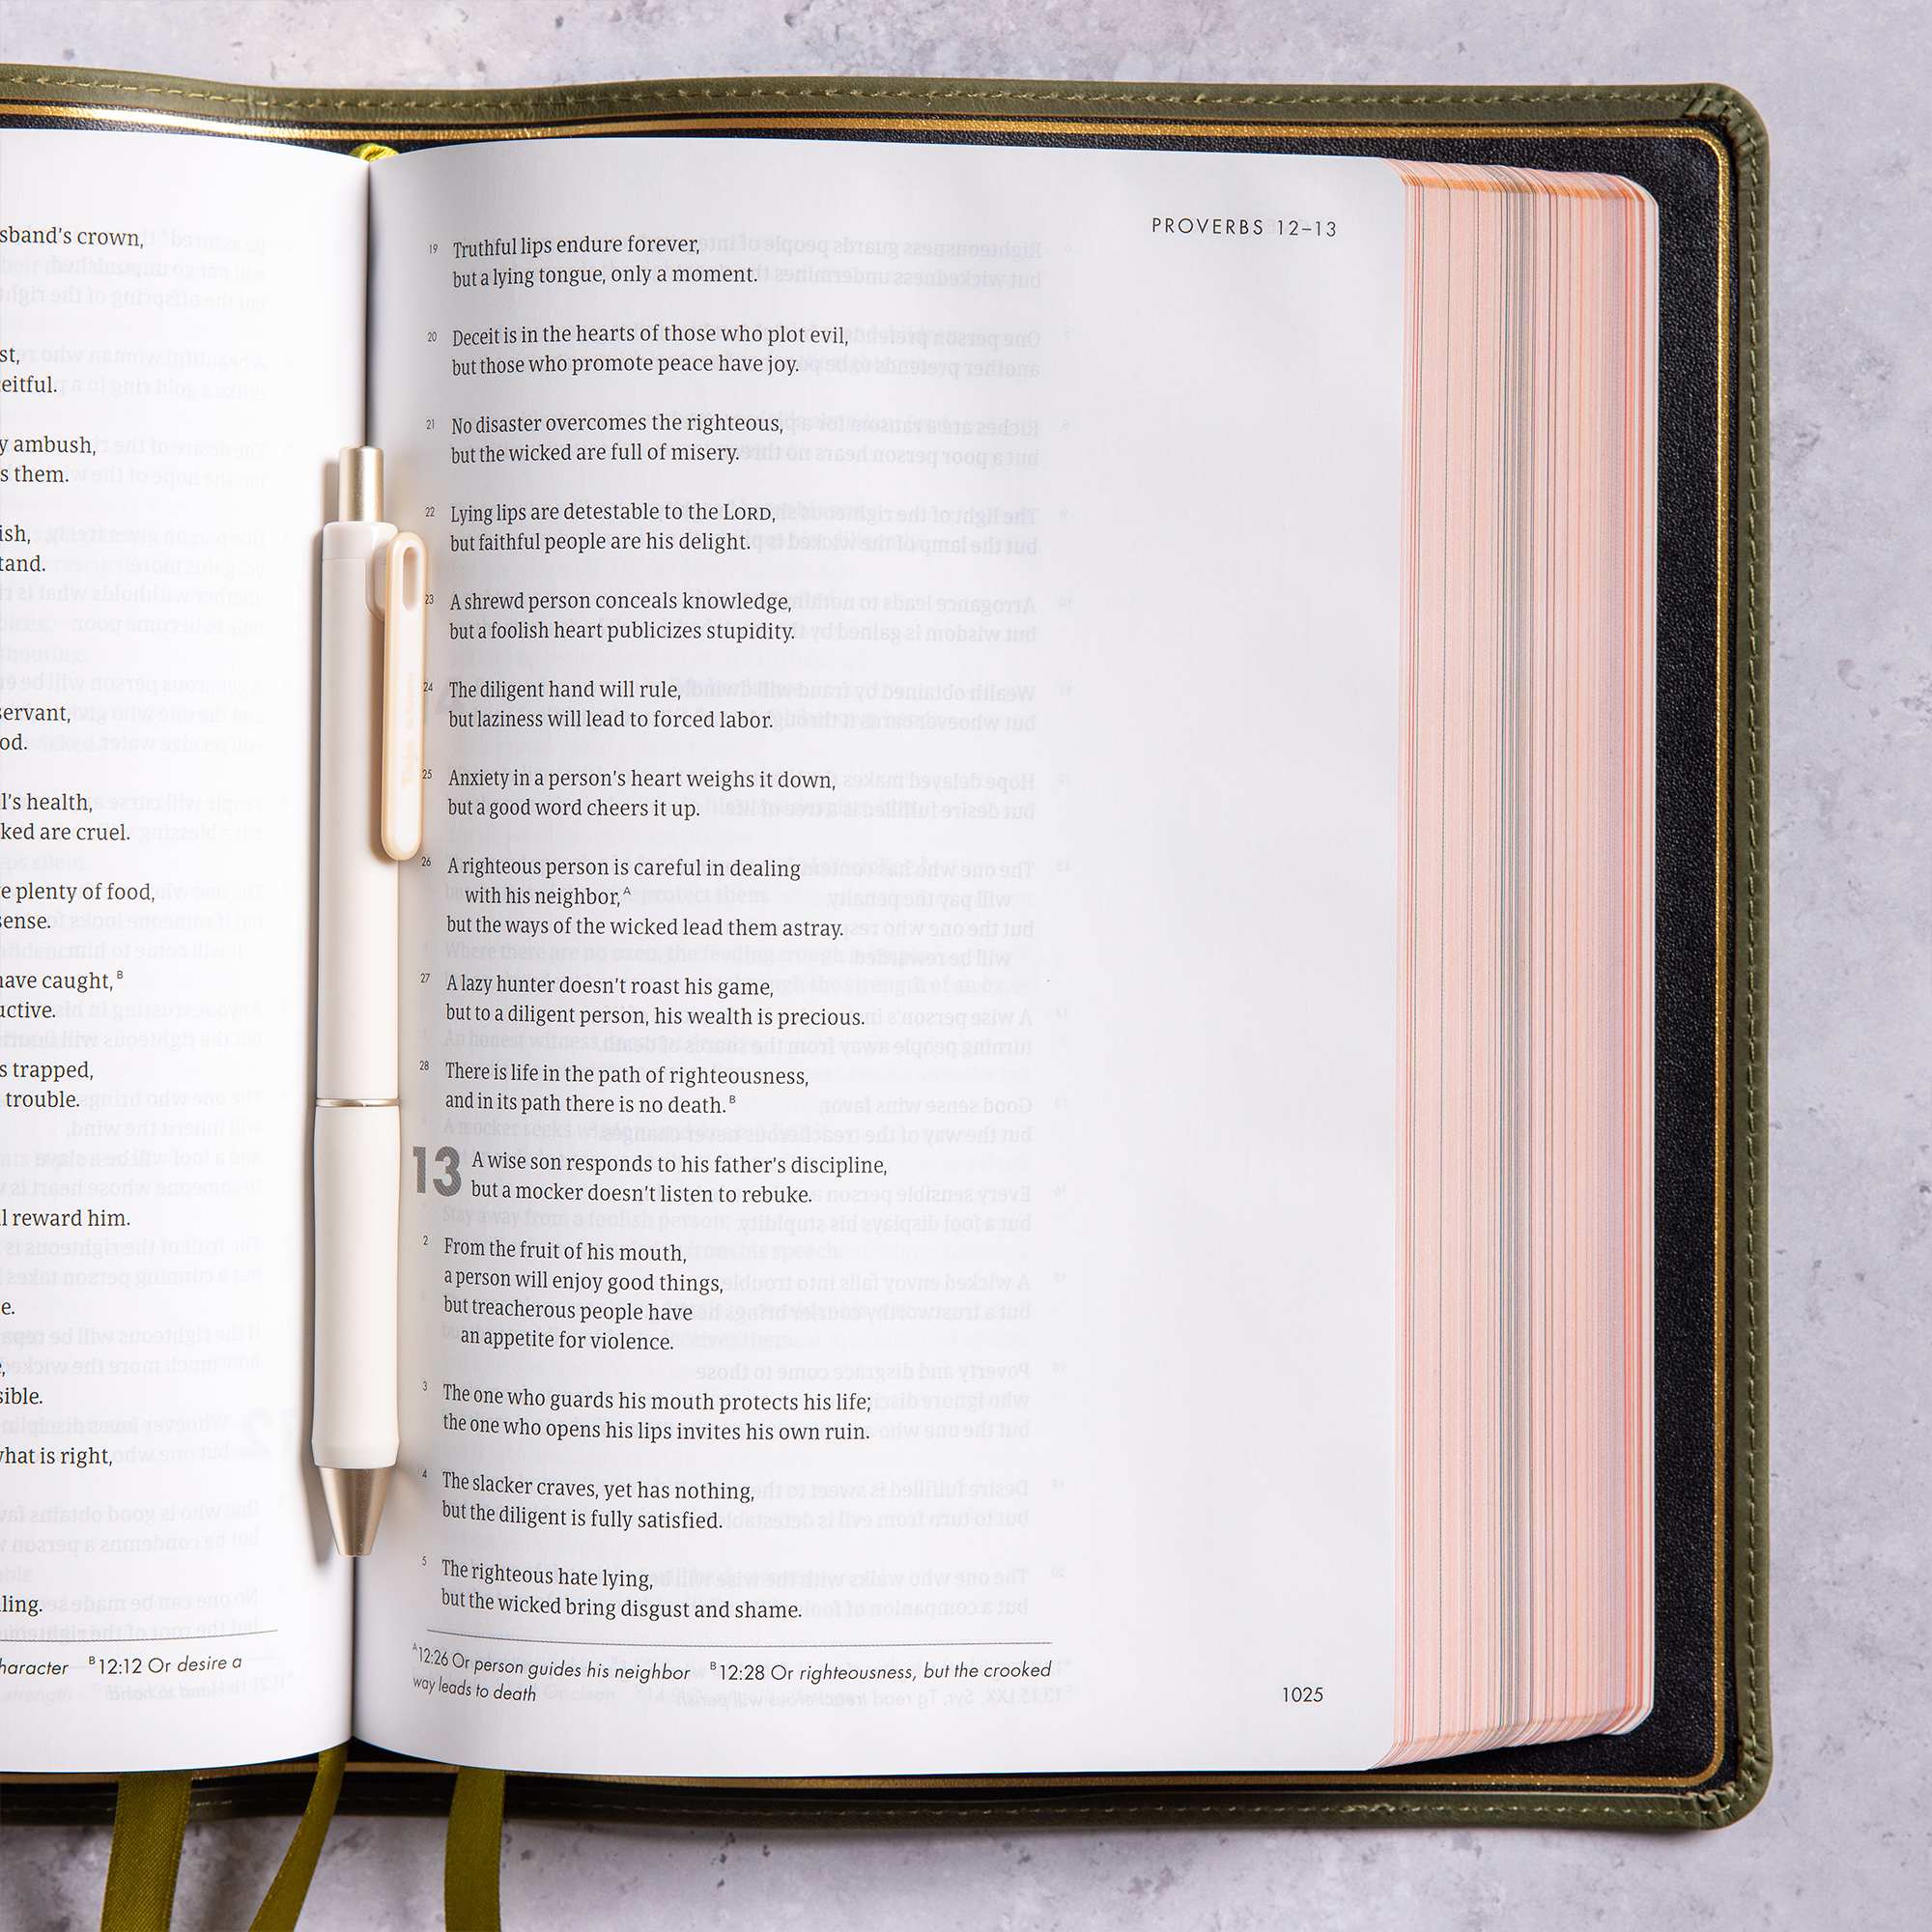 sband's crown,
st,
eitful.
y ambush,
s them.
ish,
tand.
servant,
od.
l's health,
ked are cruel.
e plenty of food,
sense.
have caught, B
uctive.
s trapped,
trouble.
l reward him.
e.
sible.
what is right,
ling.
haracter B 12:12 Or desire a
PROVERBS 12–13
19 Truthful lips endure forever,
but a lying tongue, only a moment.
20 Deceit is in the hearts of those who plot evil,
but those who promote peace have joy.
21 No disaster overcomes the righteous,
but the wicked are full of misery.
22 Lying lips are detestable to the LORD,
but faithful people are his delight.
23 A shrewd person conceals knowledge,
but a foolish heart publicizes stupidity.
24 The diligent hand will rule,
but laziness will lead to forced labor.
25 Anxiety in a person's heart weighs it down,
but a good word cheers it up.
26 A righteous person is careful in dealing
with his neighbor, A
but the ways of the wicked lead them astray.
27 A lazy hunter doesn't roast his game,
but to a diligent person, his wealth is precious.
28 There is life in the path of righteousness,
and in its path there is no death. B
13 A wise son responds to his father's discipline,
but a mocker doesn't listen to rebuke.
2 From the fruit of his mouth,
a person will enjoy good things,
but treacherous people have
an appetite for violence.
3 The one who guards his mouth protects his life;
the one who opens his lips invites his own ruin.
4 The slacker craves, yet has nothing,
but the diligent is fully satisfied.
5 The righteous hate lying,
but the wicked bring disgust and shame.
A 12:26 Or person guides his neighbor B 12:28 Or righteousness, but the crooked
way leads to death
1025